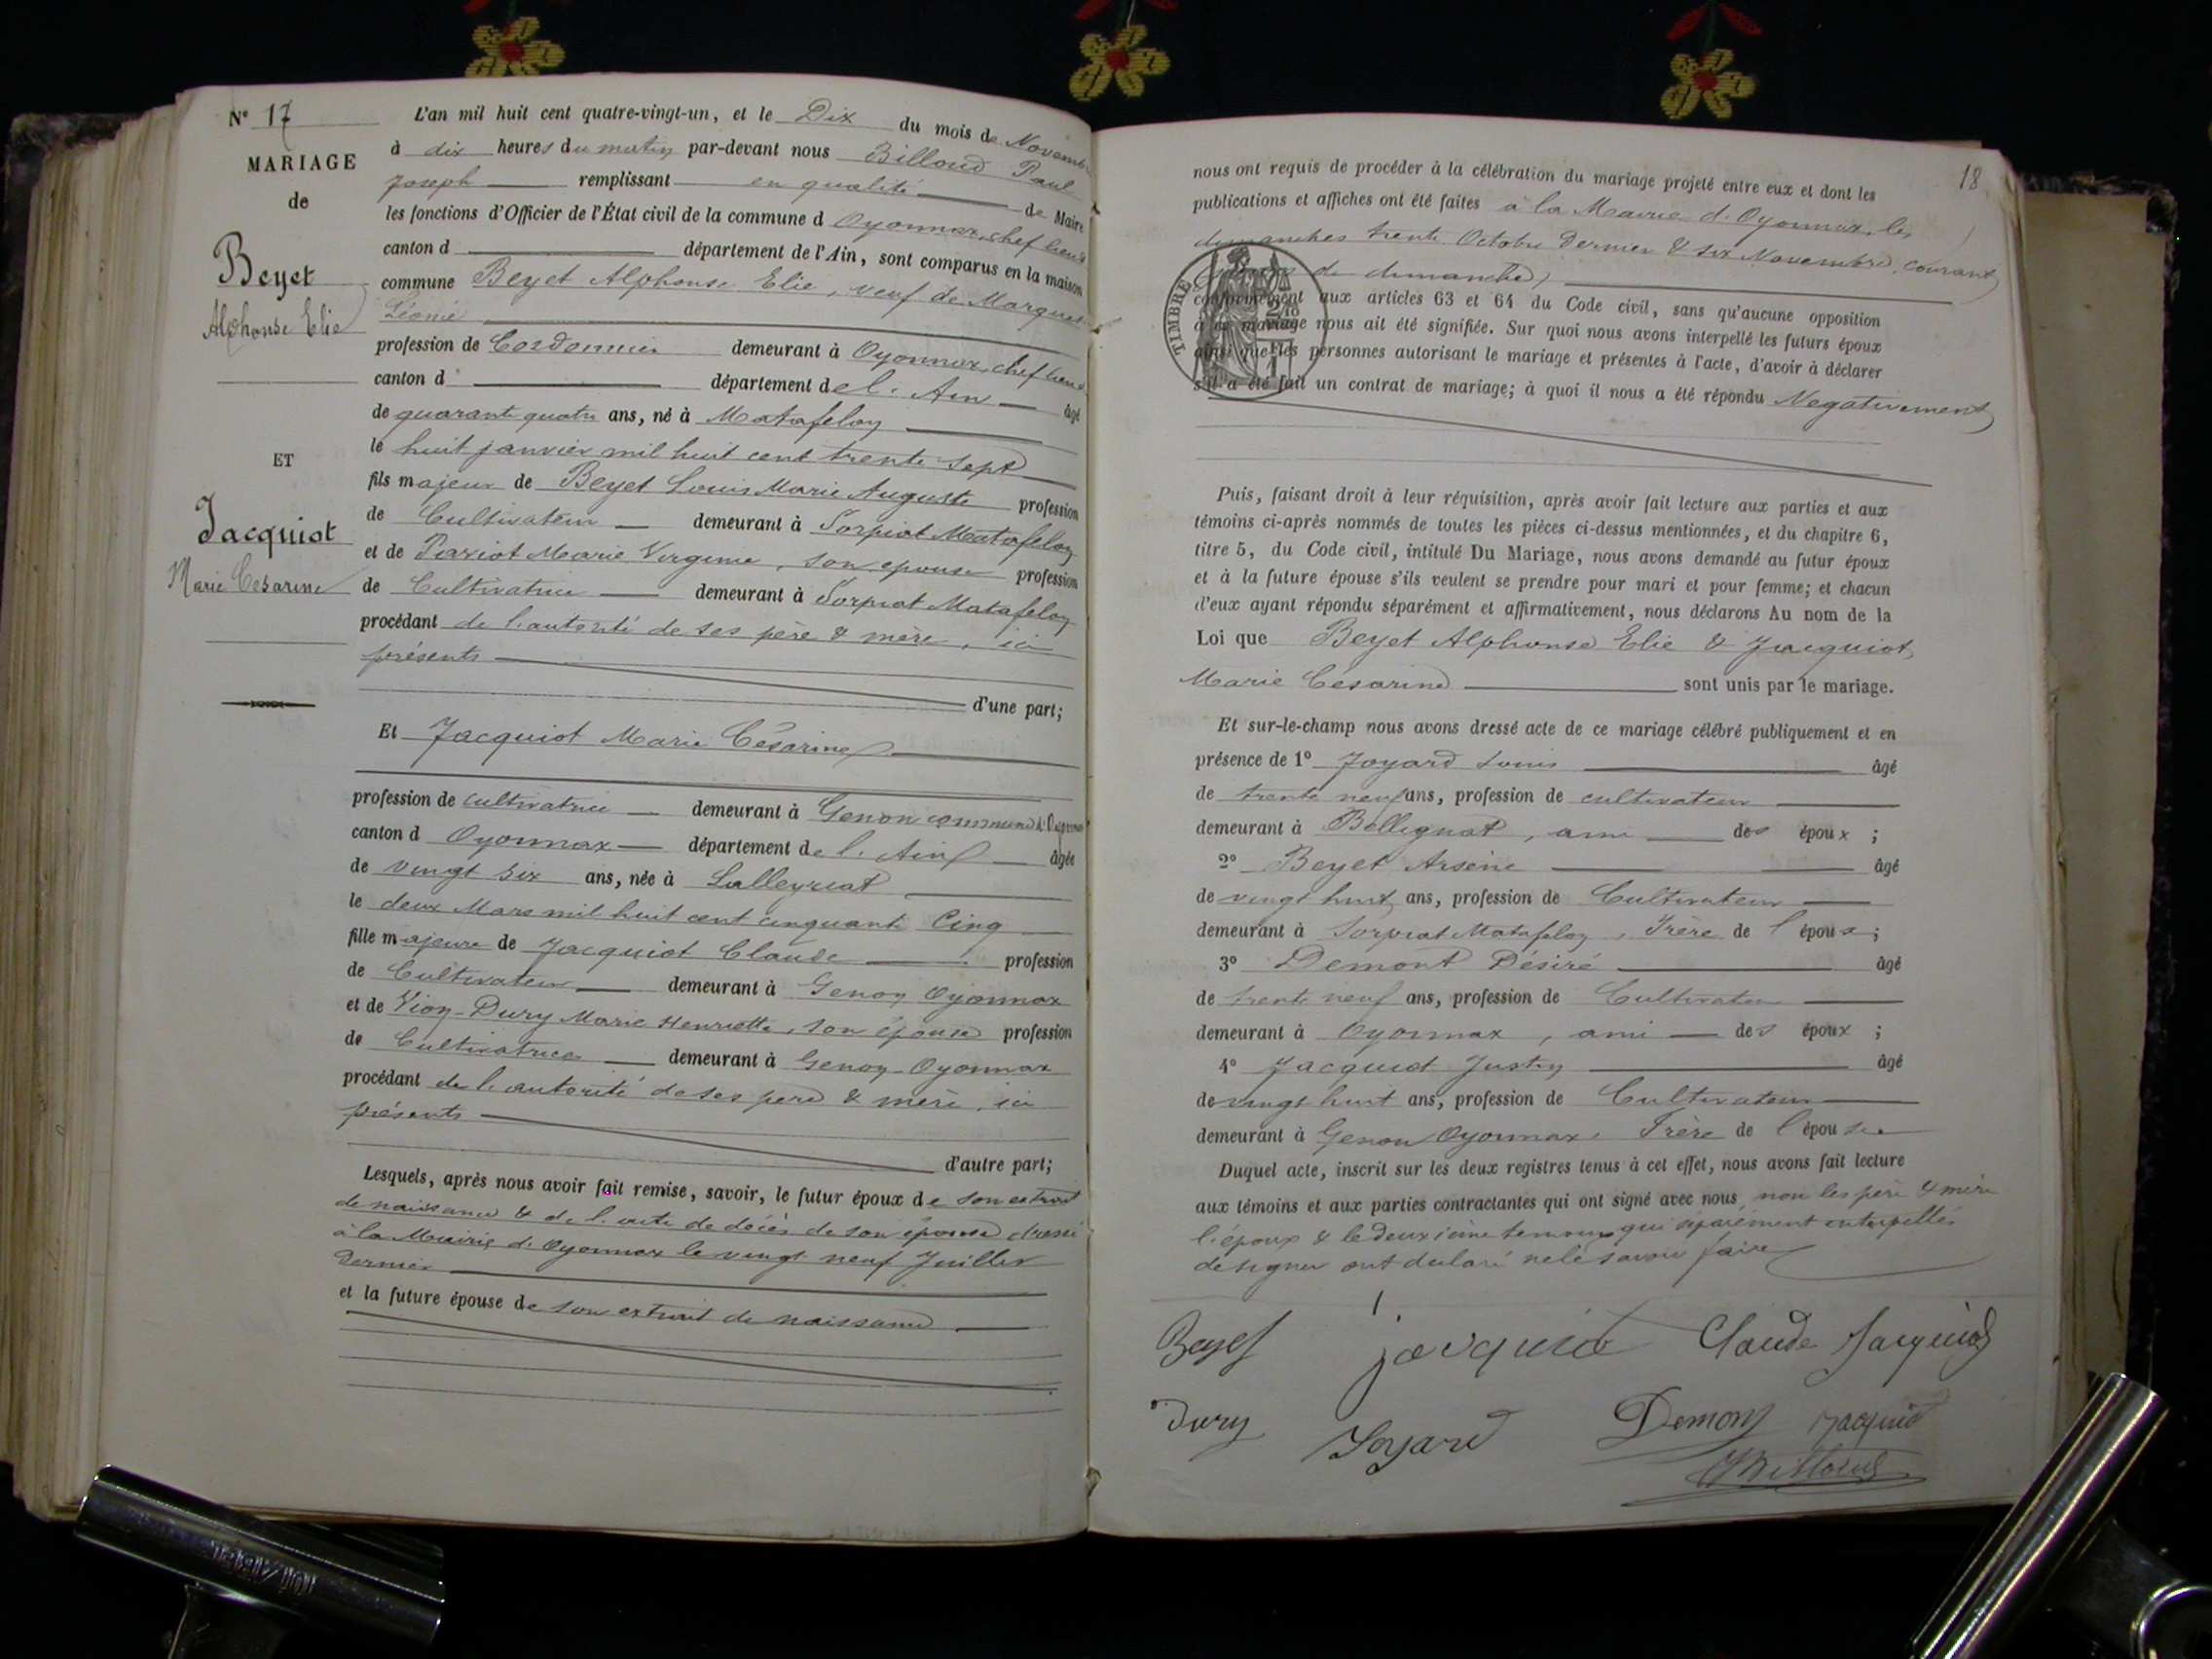 N° 17
MARIAGE
de
Beyet
Alphonse Elie
ET
Jacquiot
Marie Césarine
L'an mil huit cent quatre-vingt-un, et le Dix du mois de Novembre
à dix heures du matin par-devant nous Billoud Paul
Joseph remplissant en qualité de Maire
les fonctions d'Officier de l'État civil de la commune d Oyonnax, chef lieu d
canton d département de l'Ain, sont comparus en la maison
commune Beyet Alphonse Elie, veuf de Marquet
Léonie
profession de Cordonnier demeurant à Oyonnax, chef lieu d
canton d département de l'Ain âgé
de quarante quatre ans, né à Matafelon
le huit janvier mil huit cent trente sept
fils majeur de Beyet Louis Marie Auguste profession
de Cultivateur demeurant à Sorpiat Matafelon
et de Pariot Marie Virginie, son épouse profession
de Cultivatrice demeurant à Sorpiat Matafelon
procédant de l'autorité de ses père & mère, ici
présents
d'une part;
Et Jacquiot Marie Césarine
profession de cultivatrice demeurant à Genon commune d'Oyonnax
canton d Oyonnax département de l'Ain âgée
de vingt six ans, née à Lalleyriat
le deux Mars mil huit cent cinquante Cinq
fille majeure de Jacquiot Claude profession
de Cultivateur demeurant à Genon Oyonnax
et de Vion-Dury Marie Henriette, son épouse profession
de Cultivatrice demeurant à Genon Oyonnax
procédant de l'autorité de ses père & mère, ici
présents
d'autre part;
Lesquels, après nous avoir fait remise, savoir, le futur époux de son extrait
de naissance & de l'acte de décès de son épouse dressé
à la Mairie d'Oyonnax le vingt neuf Juillet
dernier
et la future épouse de son extrait de naissance
18
nous ont requis de procéder à la célébration du mariage projeté entre eux et dont les
publications et affiches ont été faites à la Mairie d'Oyonnax, les
dimanches trente Octobre dernier & six Novembre, courant
de dimanche)
TIMBRE
conformément aux articles 63 et 64 du Code civil, sans qu'aucune opposition
à ce mariage nous ait été signifiée. Sur quoi nous avons interpellé les futurs époux
ainsi que les personnes autorisant le mariage et présentes à l'acte, d'avoir à déclarer
s'il a été fait un contrat de mariage; à quoi il nous a été répondu Négativement
Puis, faisant droit à leur réquisition, après avoir fait lecture aux parties et aux
témoins ci-après nommés de toutes les pièces ci-dessus mentionnées, et du chapitre 6,
titre 5, du Code civil, intitulé Du Mariage, nous avons demandé au futur époux
et à la future épouse s'ils veulent se prendre pour mari et pour femme; et chacun
d'eux ayant répondu séparément et affirmativement, nous déclarons Au nom de la
Loi que Beyet Alphonse Elie & Jacquiot,
Marie Césarine sont unis par le mariage.
Et sur-le-champ nous avons dressé acte de ce mariage célébré publiquement et en
présence de 1° Joyard Louis âgé
de trente neuf ans, profession de cultivateur
demeurant à Bellignat, ami des époux ;
2° Beyet Arsène âgé
de vingt huit ans, profession de Cultivateur
demeurant à Sorpiat Matafelon, Frère de l'époux ;
3° Demont Désiré âgé
de trente neuf ans, profession de Cultivateur
demeurant à Oyonnax, ami des époux ;
4° Jacquiot Justin âgé
de vingt huit ans, profession de Cultivateur
demeurant à Genon Oyonnax, Frère de l'épouse
Duquel acte, inscrit sur les deux registres tenus à cet effet, nous avons fait lecture
aux témoins et aux parties contractantes qui ont signé avec nous, non les père & mère
l'époux & le deuxième témoin qui séparément interpellés
de signer ont déclaré ne le savoir faire
Beyet jacquiot Claude Jacquiot
Dury Joyard Demont Jacquiot
Billoud